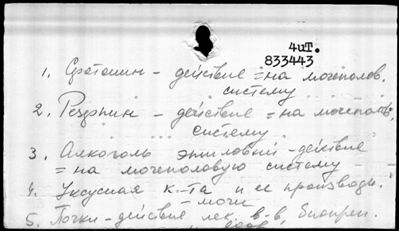 4иТ.
833443
1. Серотонин - действие = на мочеполов.
систему
2. Резерпин - действие = на мочеполов.
систему
3. Алкоголь этиловый - действие
= на мочеполовую систему
4. Уксусная к-та и ее производн.
- мочи
5. Почки - действие лек. в-в,